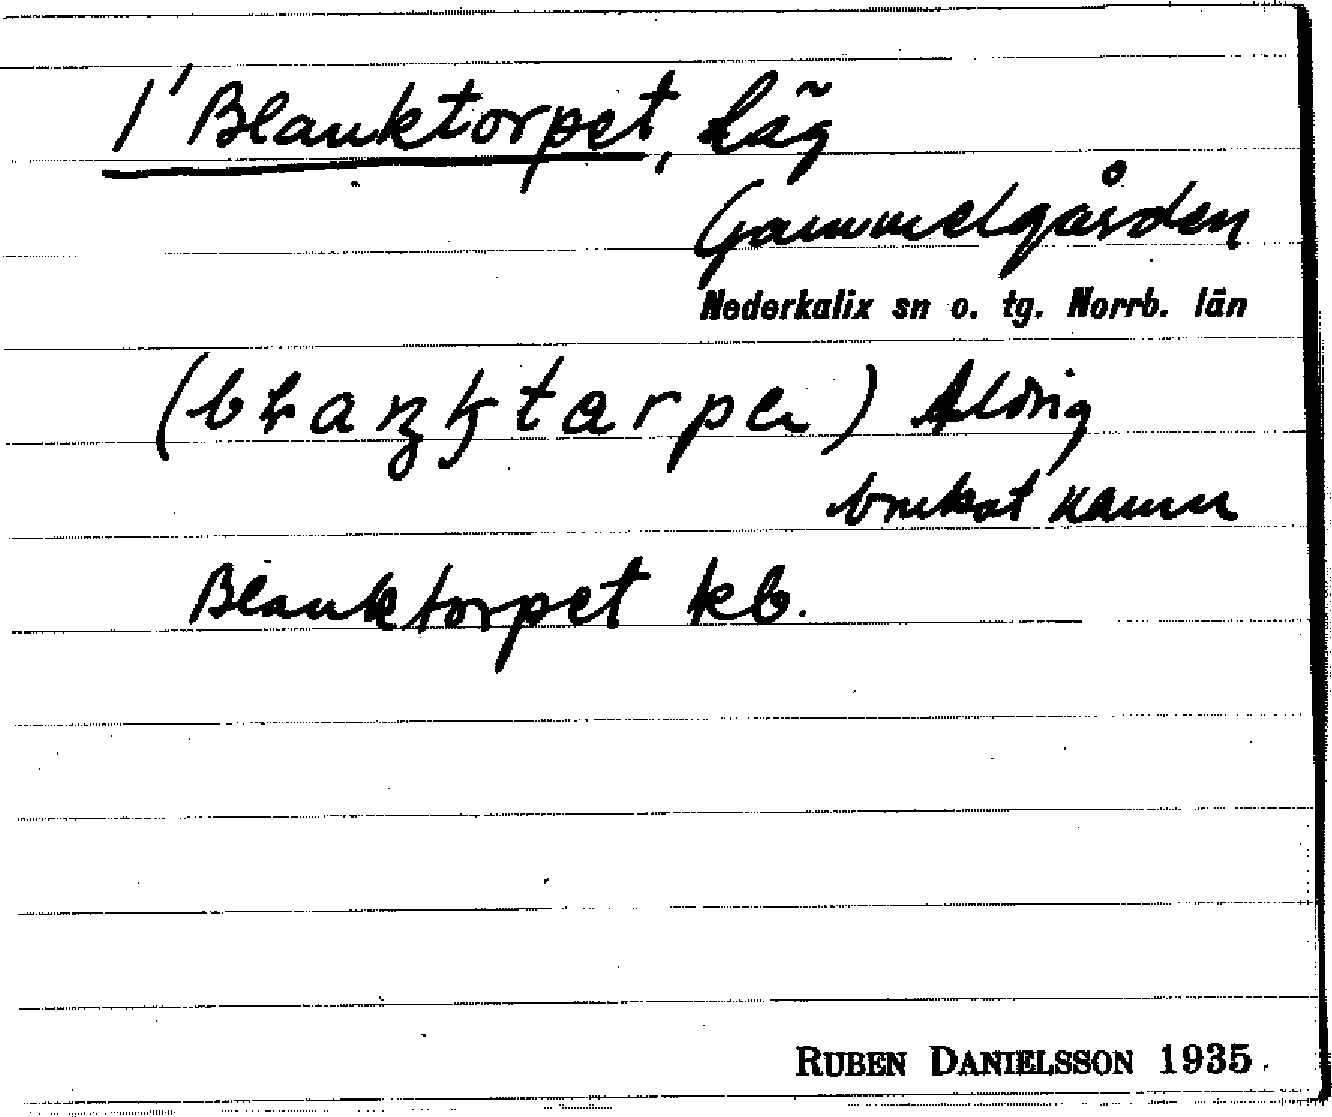 1' Blanktorpet, läg
Gammelgården
Nederkalix sn o. tg. Norrb. län
Aldrig
brukat namn
Blanktorpet kb.
RUBEN DANIELSSON 1935